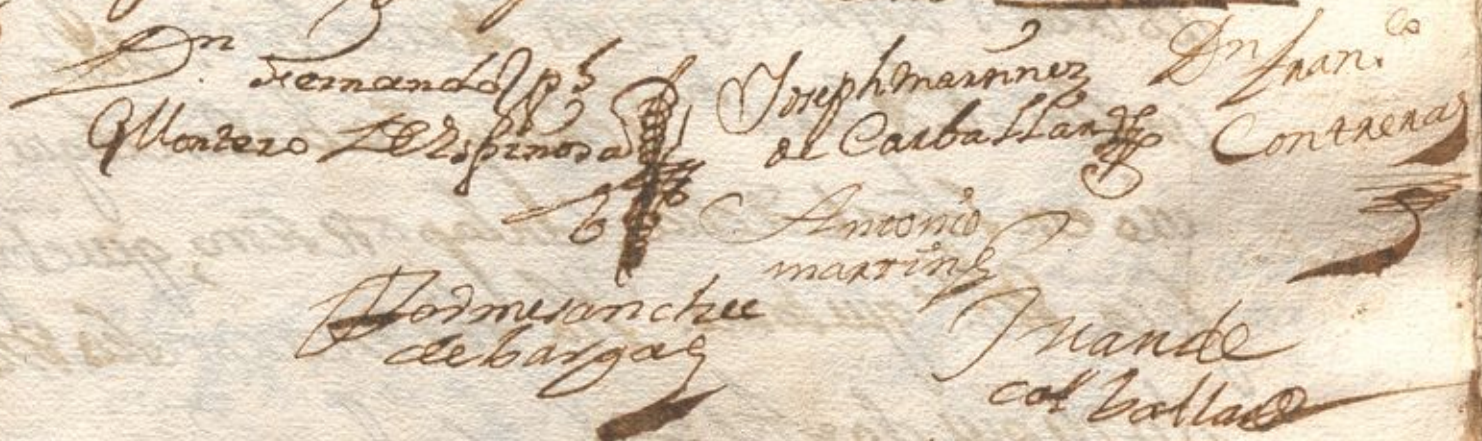 Dn Fernando Jph
Montero De Espinosa
Joseph Martinez
de Carballar
Dn Fran.co
Contreras
Antonio
martin
sanchee
debargas
Juan de
carballar